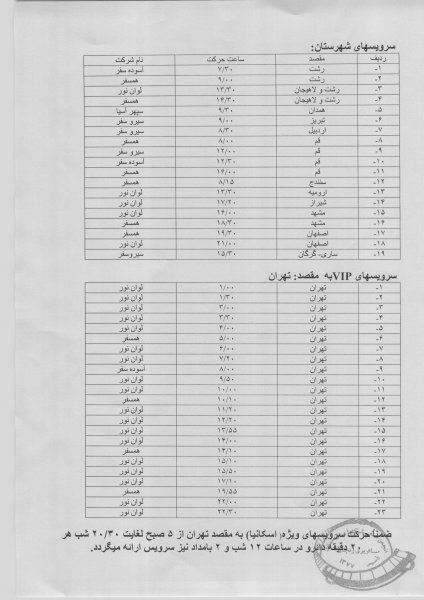 سرویسهای شهرستان:
ردیف مقصد ساعت حرکت نام شرکت
۱- رشت ۷/۳۰ آسوده سفر
۲- رشت ۹/۰۰ همسفر
۳- رشت و لاهیجان ۱۳/۳۰ لوان نور
۴- رشت و لاهیجان ۱۴/۳۰ همسفر
۵- همدان ۹/۳۰ سپهر آسیا
۶- تبریز ۹/۰۰ سیرو سفر
۷- اردبیل ۸/۳۰ سیرو سفر
۸- قم ۸/۰۰ همسفر
۹- قم ۱۲/۰۰ سیرو سفر
۱۰- قم ۱۲/۳۰ آسوده سفر
۱۱- قم ۱۴/۰۰ همسفر
۱۲- سنندج ۸/۱۵ همسفر
۱۳- ارومیه ۱۳/۳۰ لوان نور
۱۴- شیراز ۱۷/۲۰ لوان نور
۱۵- مشهد ۱۴/۰۰ لوان نور
۱۶- مشهد ۱۸/۳۰ همسفر
۱۷- اصفهان ۱۹/۳۰ همسفر
۱۸- اصفهان ۲۱/۰۰ لوان نور
۱۹- ساری-گرگان ۱۵/۳۰ سیروسفر
سرویسهای VIPبه مقصد: تهران
۱- تهران ۱/۰۰ لوان نور
۲- تهران ۱/۳۰ لوان نور
۳- تهران ۳/۰۰ لوان نور
۴- تهران ۳/۳۰ لوان نور
۵- تهران ۴/۰۰ لوان نور
۶- تهران ۵/۰۰ همسفر
۷- تهران ۶/۰۰ لوان نور
۸- تهران ۷/۲۰ لوان نور
۹- تهران ۸/۰۰ آسوده سفر
۱۰- تهران ۹/۵۰ لوان نور
۱۱- تهران ۱۰/۰۰ لوان نور
۱۲- تهران ۱۰/۱۰ همسفر
۱۳- تهران ۱۱/۲۰ لوان نور
۱۴- تهران ۱۲/۲۰ لوان نور
۱۵- تهران ۱۳/۵۵ لوان نور
۱۶- تهران ۱۴/۰۰ لوان نور
۱۷- تهران ۱۴/۱۰ همسفر
۱۸- تهران ۱۵/۱۰ لوان نور
۱۹- تهران ۱۵/۵۰ لوان نور
۲۰- تهران ۱۷/۱۰ لوان نور
۲۱- تهران ۱۹/۵۵ همسفر
۲۲- تهران ۲۲/۰۰ لوان نور
۲۳- تهران ۲۲/۳۰ لوان نور
ضمنا حرکت سرویسهای ویژه( اسکانیا) به مقصد تهران از ۵ صبح لغایت ۲۰/۳۰ شب هر
۲۰ دقیقه و در ساعات ۱۲ شب و ۲ بامداد نیز سرویس ارائه میگردد.
۱۳۷۷